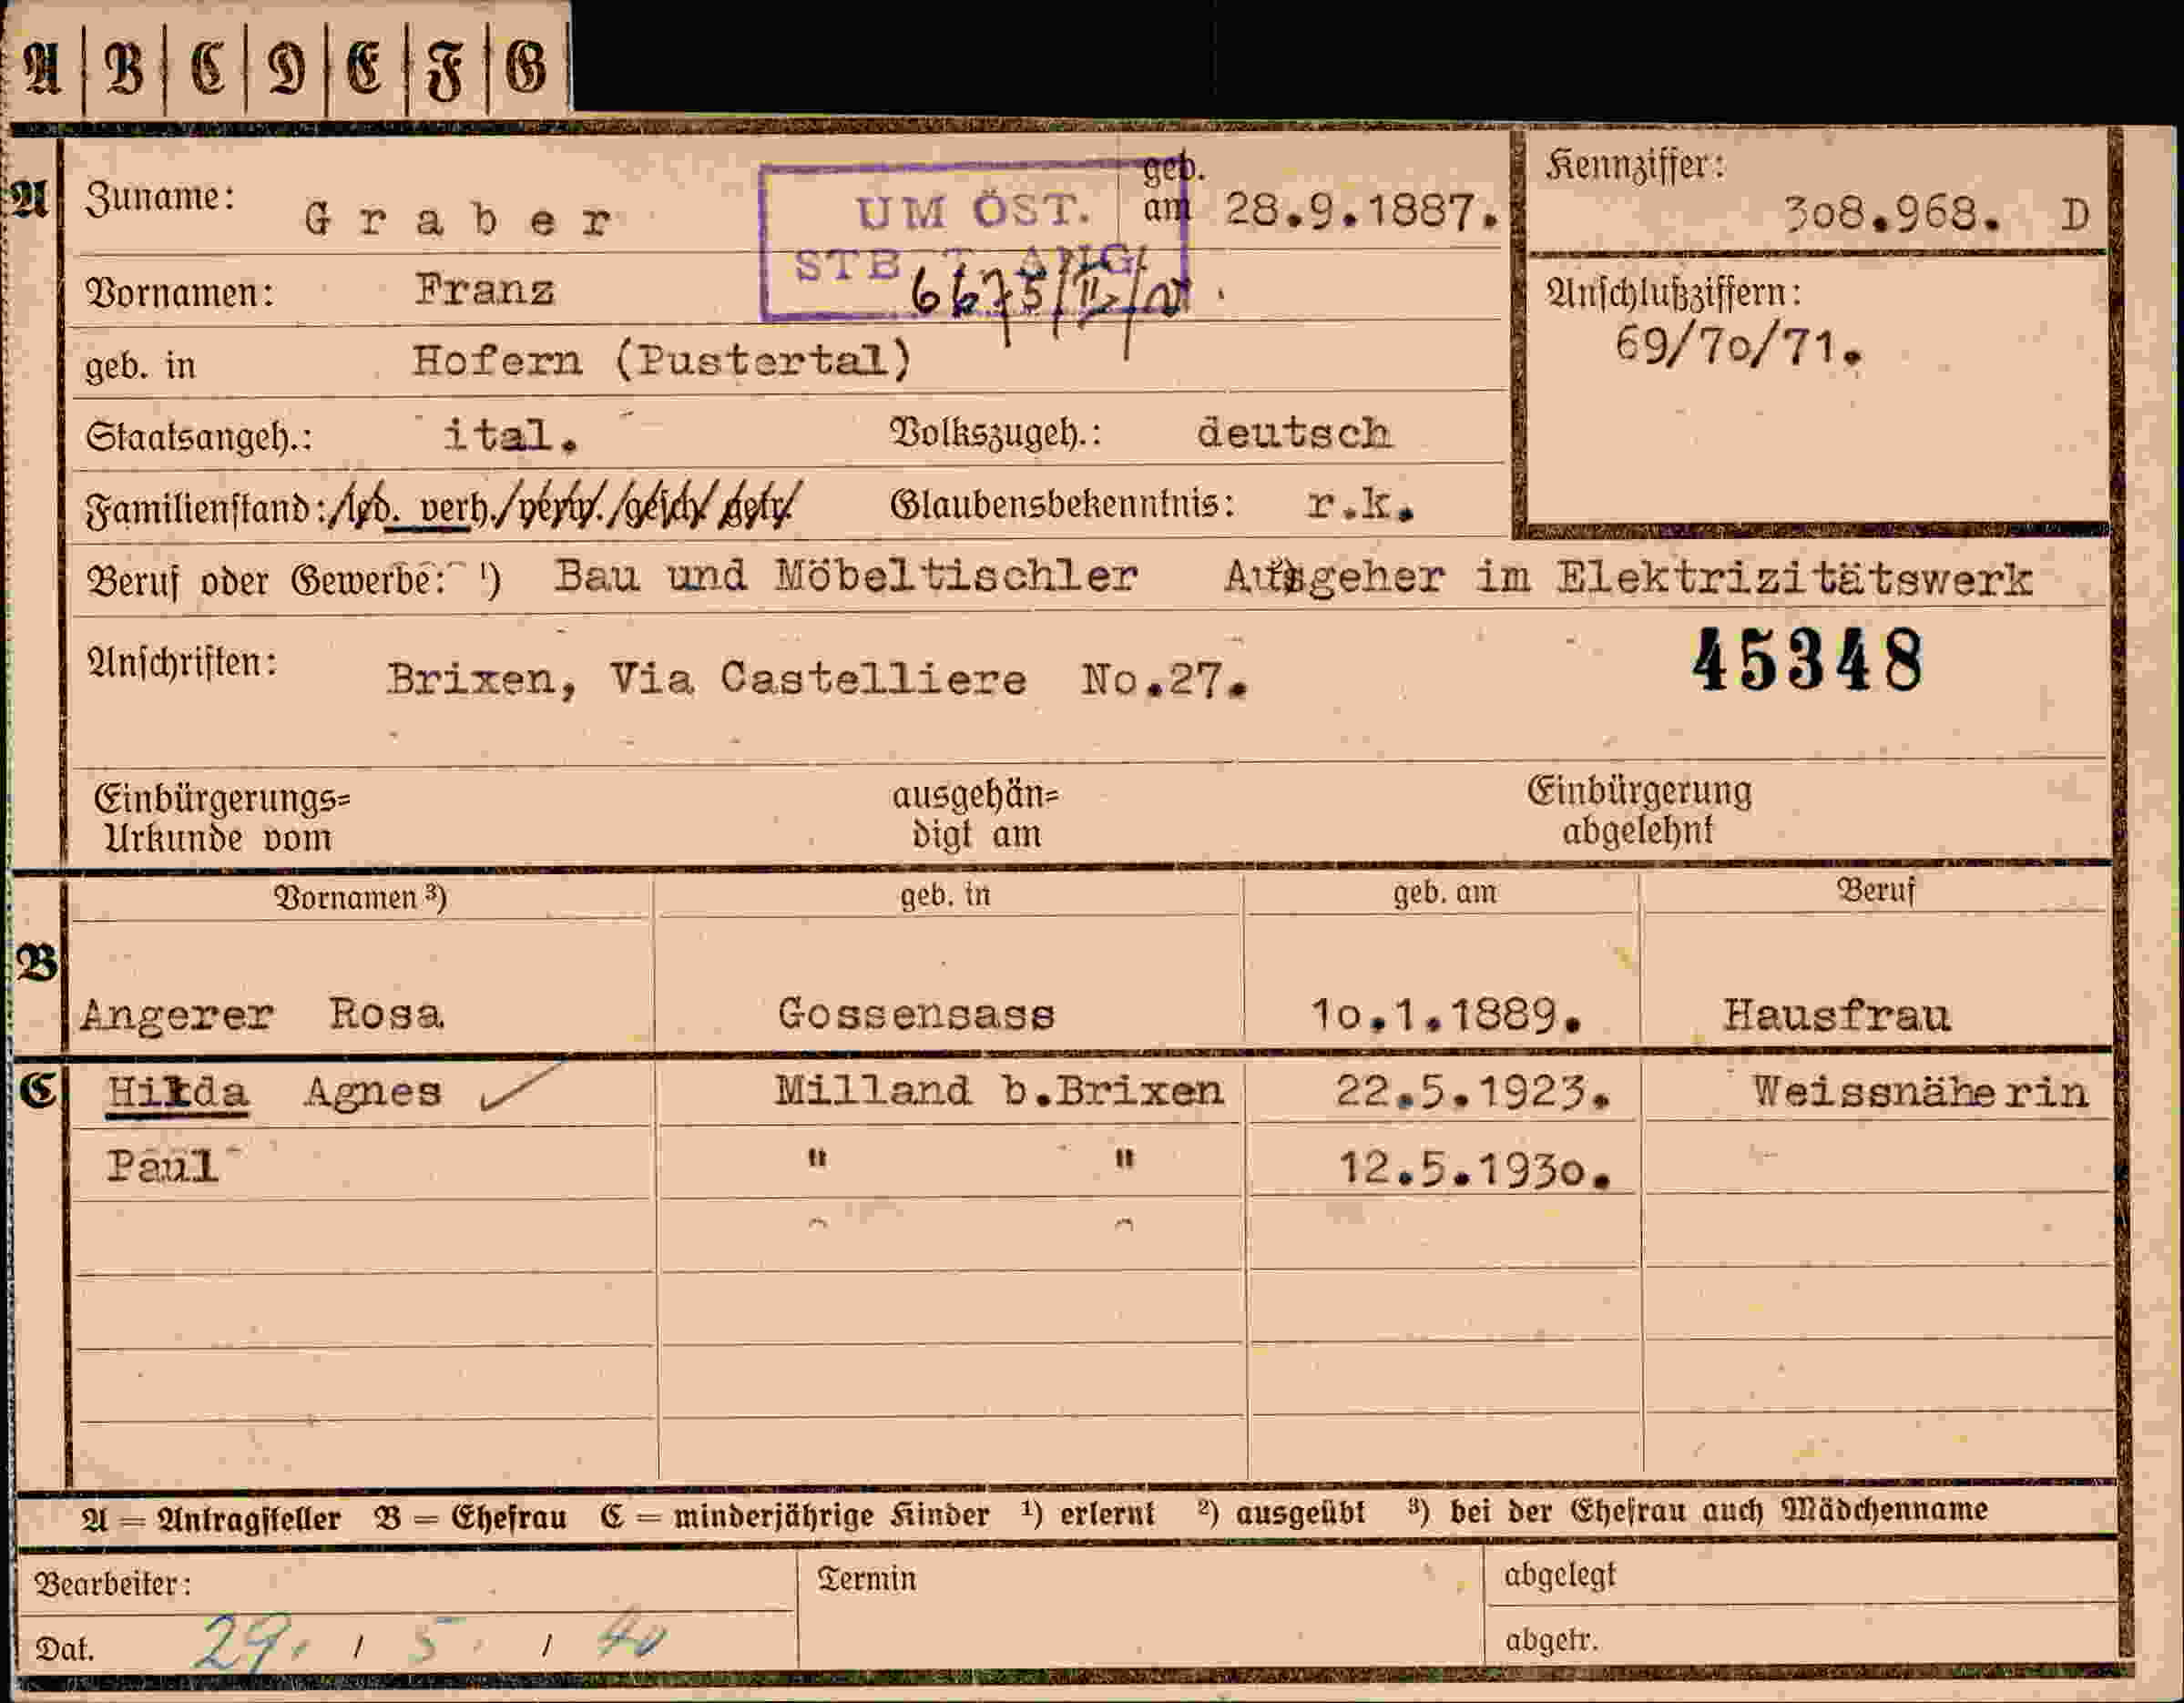 A B C D E F G
A Zuname: Graber geb. am 28.9.1887. Kennziffer: 308.968. D
UM ÖST.
STB
Vornamen: Franz 6675/II/ Anschlußziffern:
geb. in Hofern (Pustertal) 69/70/71.
Staatsangeh.: ital. Volkszugeh.: deutsch
Familienstand: led. verh./verw./gesch/getr/ Glaubensbekenntnis: r.k.
Beruf oder Gewerbe: ¹) Bau und Möbeltischler Ausgeher im Elektrizitätswerk
45348
Anschriften: Brixen, Via Castelliere No.27.
Einbürgerungs= ausgehän= Einbürgerung
Urkunde vom digt am abgelehnt
Vornamen ³) geb. in geb. am Beruf
B
Angerer Rosa Gossensass 10.1.1889. Hausfrau
C Hilda Agnes ✓ Milland b.Brixen 22.5.1923. Weissnäherin
Paul " " 12.5.1930.
A = Antragsteller B = Ehefrau C = minderjährige Kinder ¹) erlernt ²) ausgeübt ³) bei der Ehefrau auch Mädchenname
Bearbeiter: Termin abgelegt
Dat. 29. / 5. / 40 abgetr.